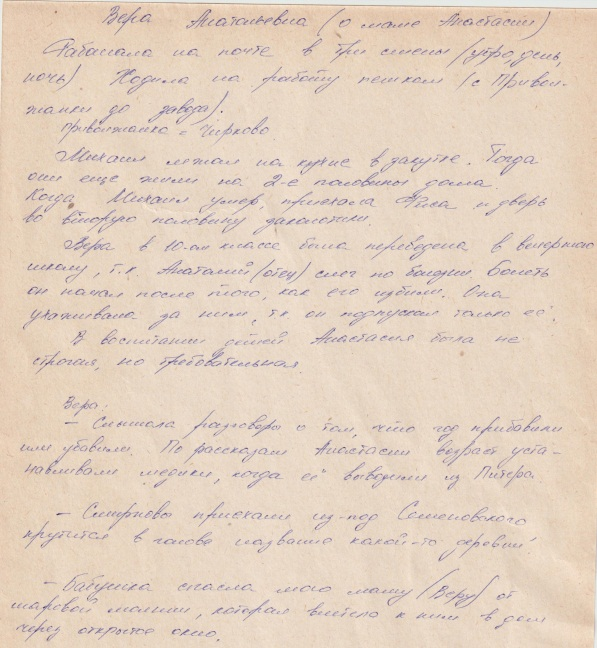 Вера Анатольевна (о маме Анастасии)
Работала на почте в три смены (утро, день,
ночь) Ходила на работу пешком (с Привол-
жанки до завода).
Приволжанка = Чирково
Михаил лежал на кухне в закутке. Тогда
они еще жили на 2-е половины дома.
Когда Михаил умер, приехала Раса и дверь
во вторую половину заколотили.
Вера в 10-ом классе была переведена в вечернюю
школу, т.к. Анатолий (отец) слег по болезни. Болеть
он начал после того, как его избили. Она
ухаживала за ним, т.к. он подпускал только её.
В воспитании детей Анастасия была не
строгая, но требовательная
Вера:
– Слышала разговоры о том, что год прибавили
или убавили. По рассказам Анастасии возраст уста-
навливали медики, когда её вывозили из Питера.
– Смирновы приехали из-под Семеновского
крутится в голове название какой-то деревни!
– Бабушка спасла мою маму (Веру) от
шаровой молнии, которая влетела к ним в дом
через открытое окно.